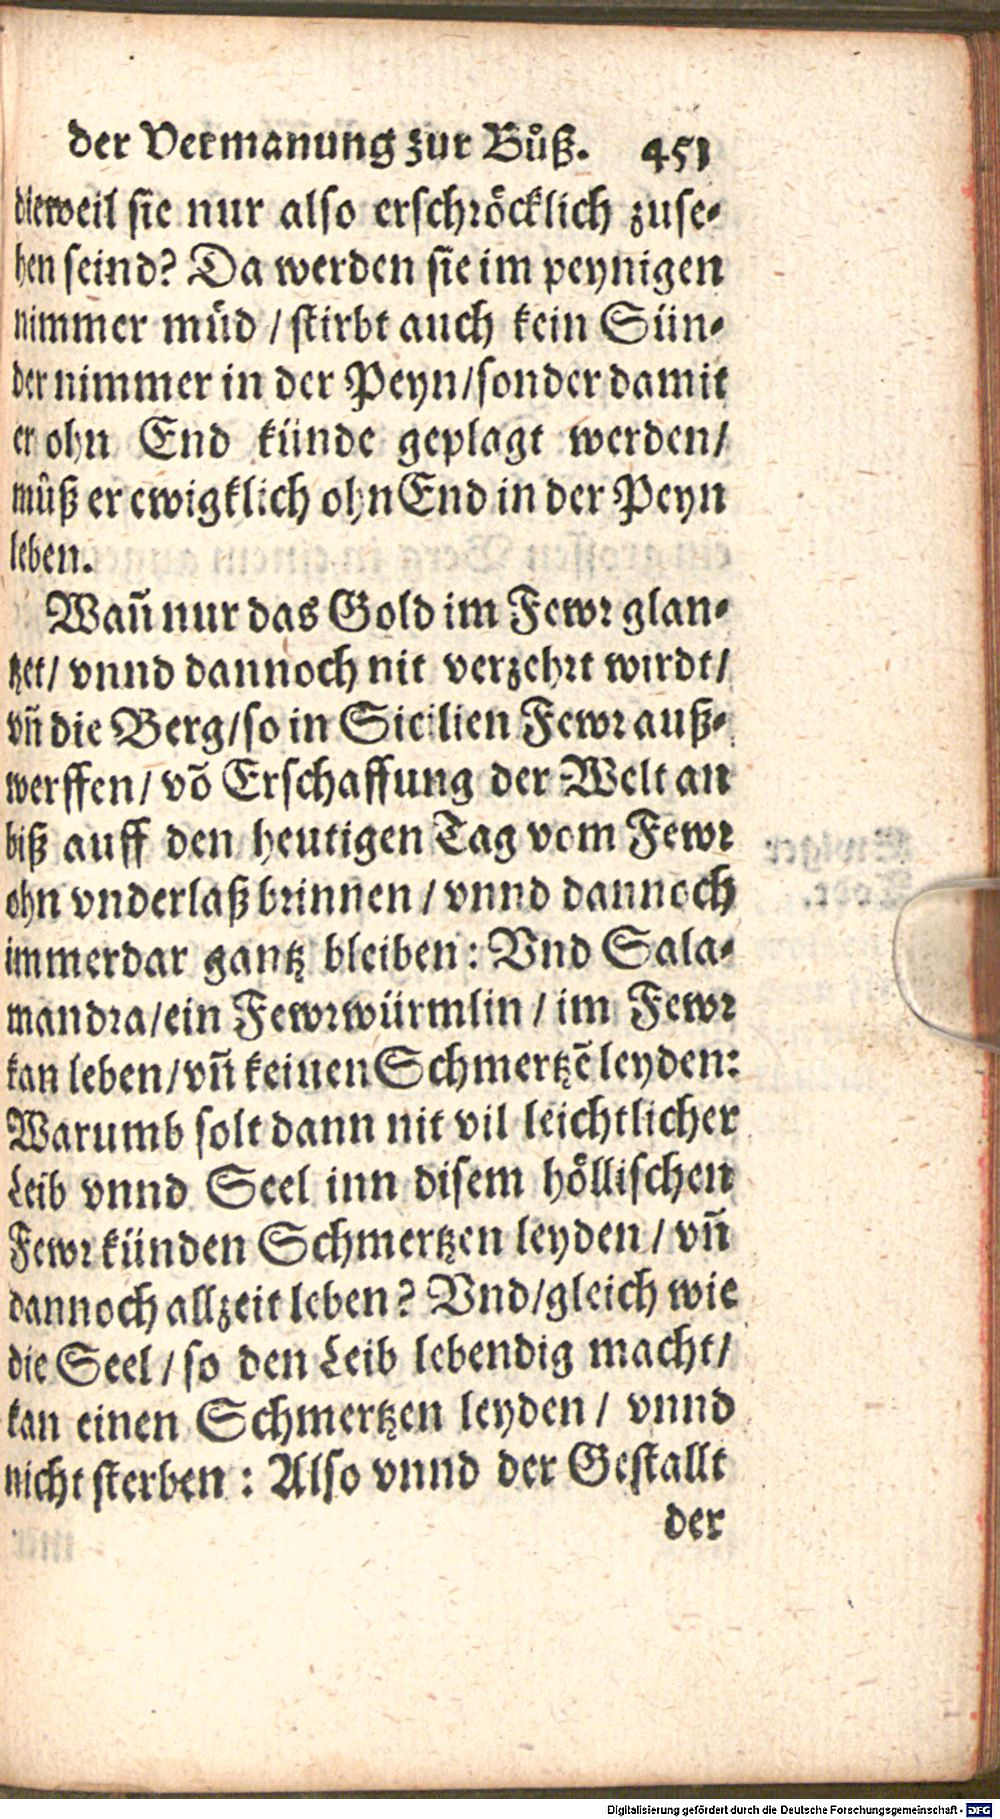 der Vermanung zur Bůß. 451
dieweil sie nur also erschröcklich zuse-
hen seind? Da werden sie im peynigen
nimmer müd / stirbt auch kein Sün-
der nimmer in der Peyn/sonder damit
er ohn End künde geplagt werden/
můß er ewigklich ohn End in der Peyn
leben.
Wañ nur das Gold im Fewr glan-
tzet/ vnnd dannoch nit verzehrt wirdt/
vñ die Berg/so in Sicilien Fewr auß-
werffen/ võ Erschaffung der Welt an
biß auff den heutigen Tag vom Fewr
ohn vnderlaß brinnen / vnnd dannoch
immerdar gantz bleiben: Vnd Sala-
mandra/ein Fewrwürmlin / im Fewr
kan leben/vñ keinen Schmertzẽ leyden:
Warumb solt dann nit vil leichtlicher
Leib vnnd Seel inn disem höllischen
Fewr künden Schmertzen leyden / vñ
dannoch allzeit leben? Vnd/gleich wie
die Seel / so den Leib lebendig macht/
kan einen Schmertzen leyden / vnnd
nicht sterben : Also vnnd der Gestallt
der
Digitalisierung gefördert durch die Deutsche Forschungsgemeinschaft - DFG